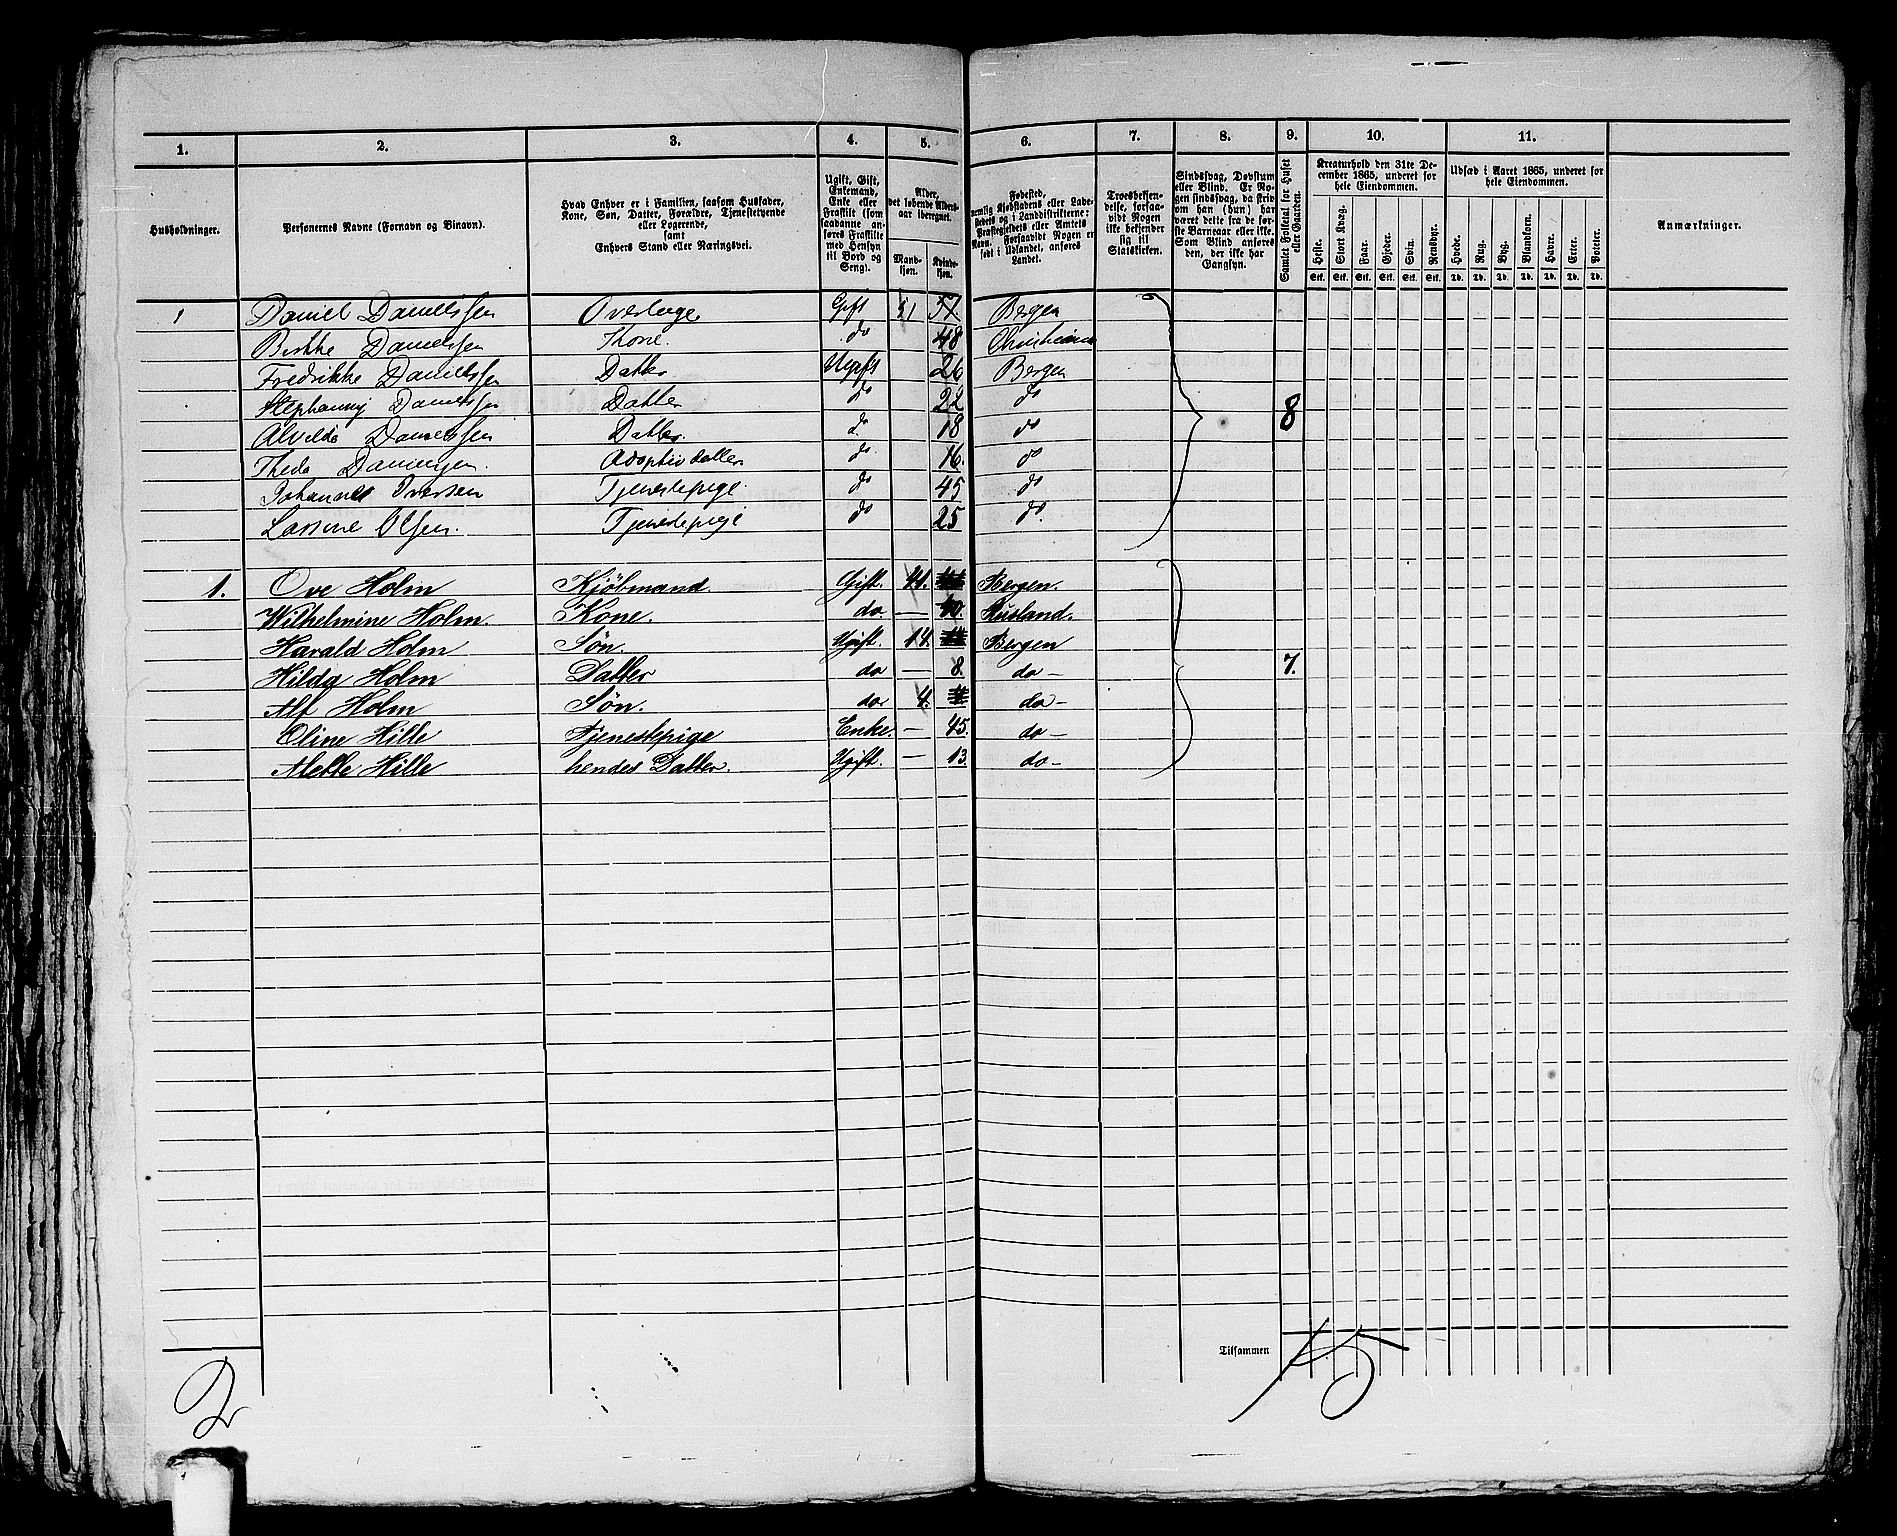 1. 2. 3. 4. 5. 6. 7. 8. 9. 10. 11.
Husholdninger.
Personernes Navne (Fornavn og Binavn).
Hvad Enhver er i Familien, saasom Husfader,
Kone, Søn, Datter, Forældre, Tjenestetyende
eller Logerende,
samt
Enhvers Stand eller Næringsvei.
Ugift, Gift,
Enkemand,
Enke eller
Fraskilt (som
saadanne an-
føres Fraskilte
med Hensyn
til Bord og
Seng).
Alder,
det løbende Alders-
aar iberegnet.
Mand-
kjøn.
Kvinde-
kjøn.
Fødested,
nemlig Kjøbstadens eller Lade-
stedets og i Landdistrikterne:
Præstegjeldets eller Amtets
Navn. Forsaavidt Nogen er
født i Udlandet, anføres
Landet.
Troesbekjen-
delse, forsaa-
vidt Nogen
ikke bekjender
sig til
Statskirken.
Sindssvag, Døvstum
eller Blind. Er No-
gen sindssvag, da skriv
om han (hun) har
været dette fra de før-
ste Barneaar eller ikke.
Som Blind anføres
den, der ikke har
Gangsyn.
Samlet Folketal for Huset
eller Gaarden.
Kreaturhold den 31te De-
cember 1865, underet for
hele Eiendommen.
Heste. Stort Kvæg. Faar. Gjeder. Svin. Rensdyr.
Stk. Stk. Stk. Stk. Stk. Stk.
Udsæd i Aaret 1865, underet for
hele Eiendommen.
Hvede. Rug. Byg. Blandkorn. Havre. Erter. Poteter.
Td. Td. Td. Td. Td. Td. Td.
Anmærkninger.
1 Daniel Danielssen Overlæge Gift 51 Bergen
Danielssen Kone. do 48 Christiania
Fredrikke Danielssen Datter Ugift 26 Bergen
Stephanny Danielssen Datter do 22 do 8
Alvilde Danielssen Datter do 18 do
Theda Danielssen. Adoptivdatter do. 16. do
Iversen Tjenestepige. do 45 do
Lassine Olsen. Tjenestepige do 25 do.
1. Ove Holm Kjöbmand. Gift. 41. Bergen.
Wilhelmine Holm. Kone. do. — 40. Rusland.
Harald Holm Søn. Ugift. 14. Bergen
Hilda Holm Datter do — 8. do — 7.
Alf Holm Søn. do 4. do —
Oline Hille Tjenestepige Enke. — 45. do —
Mette Hille hendes Datter. Ugift. — 13. do —
Tilsammen 15
2